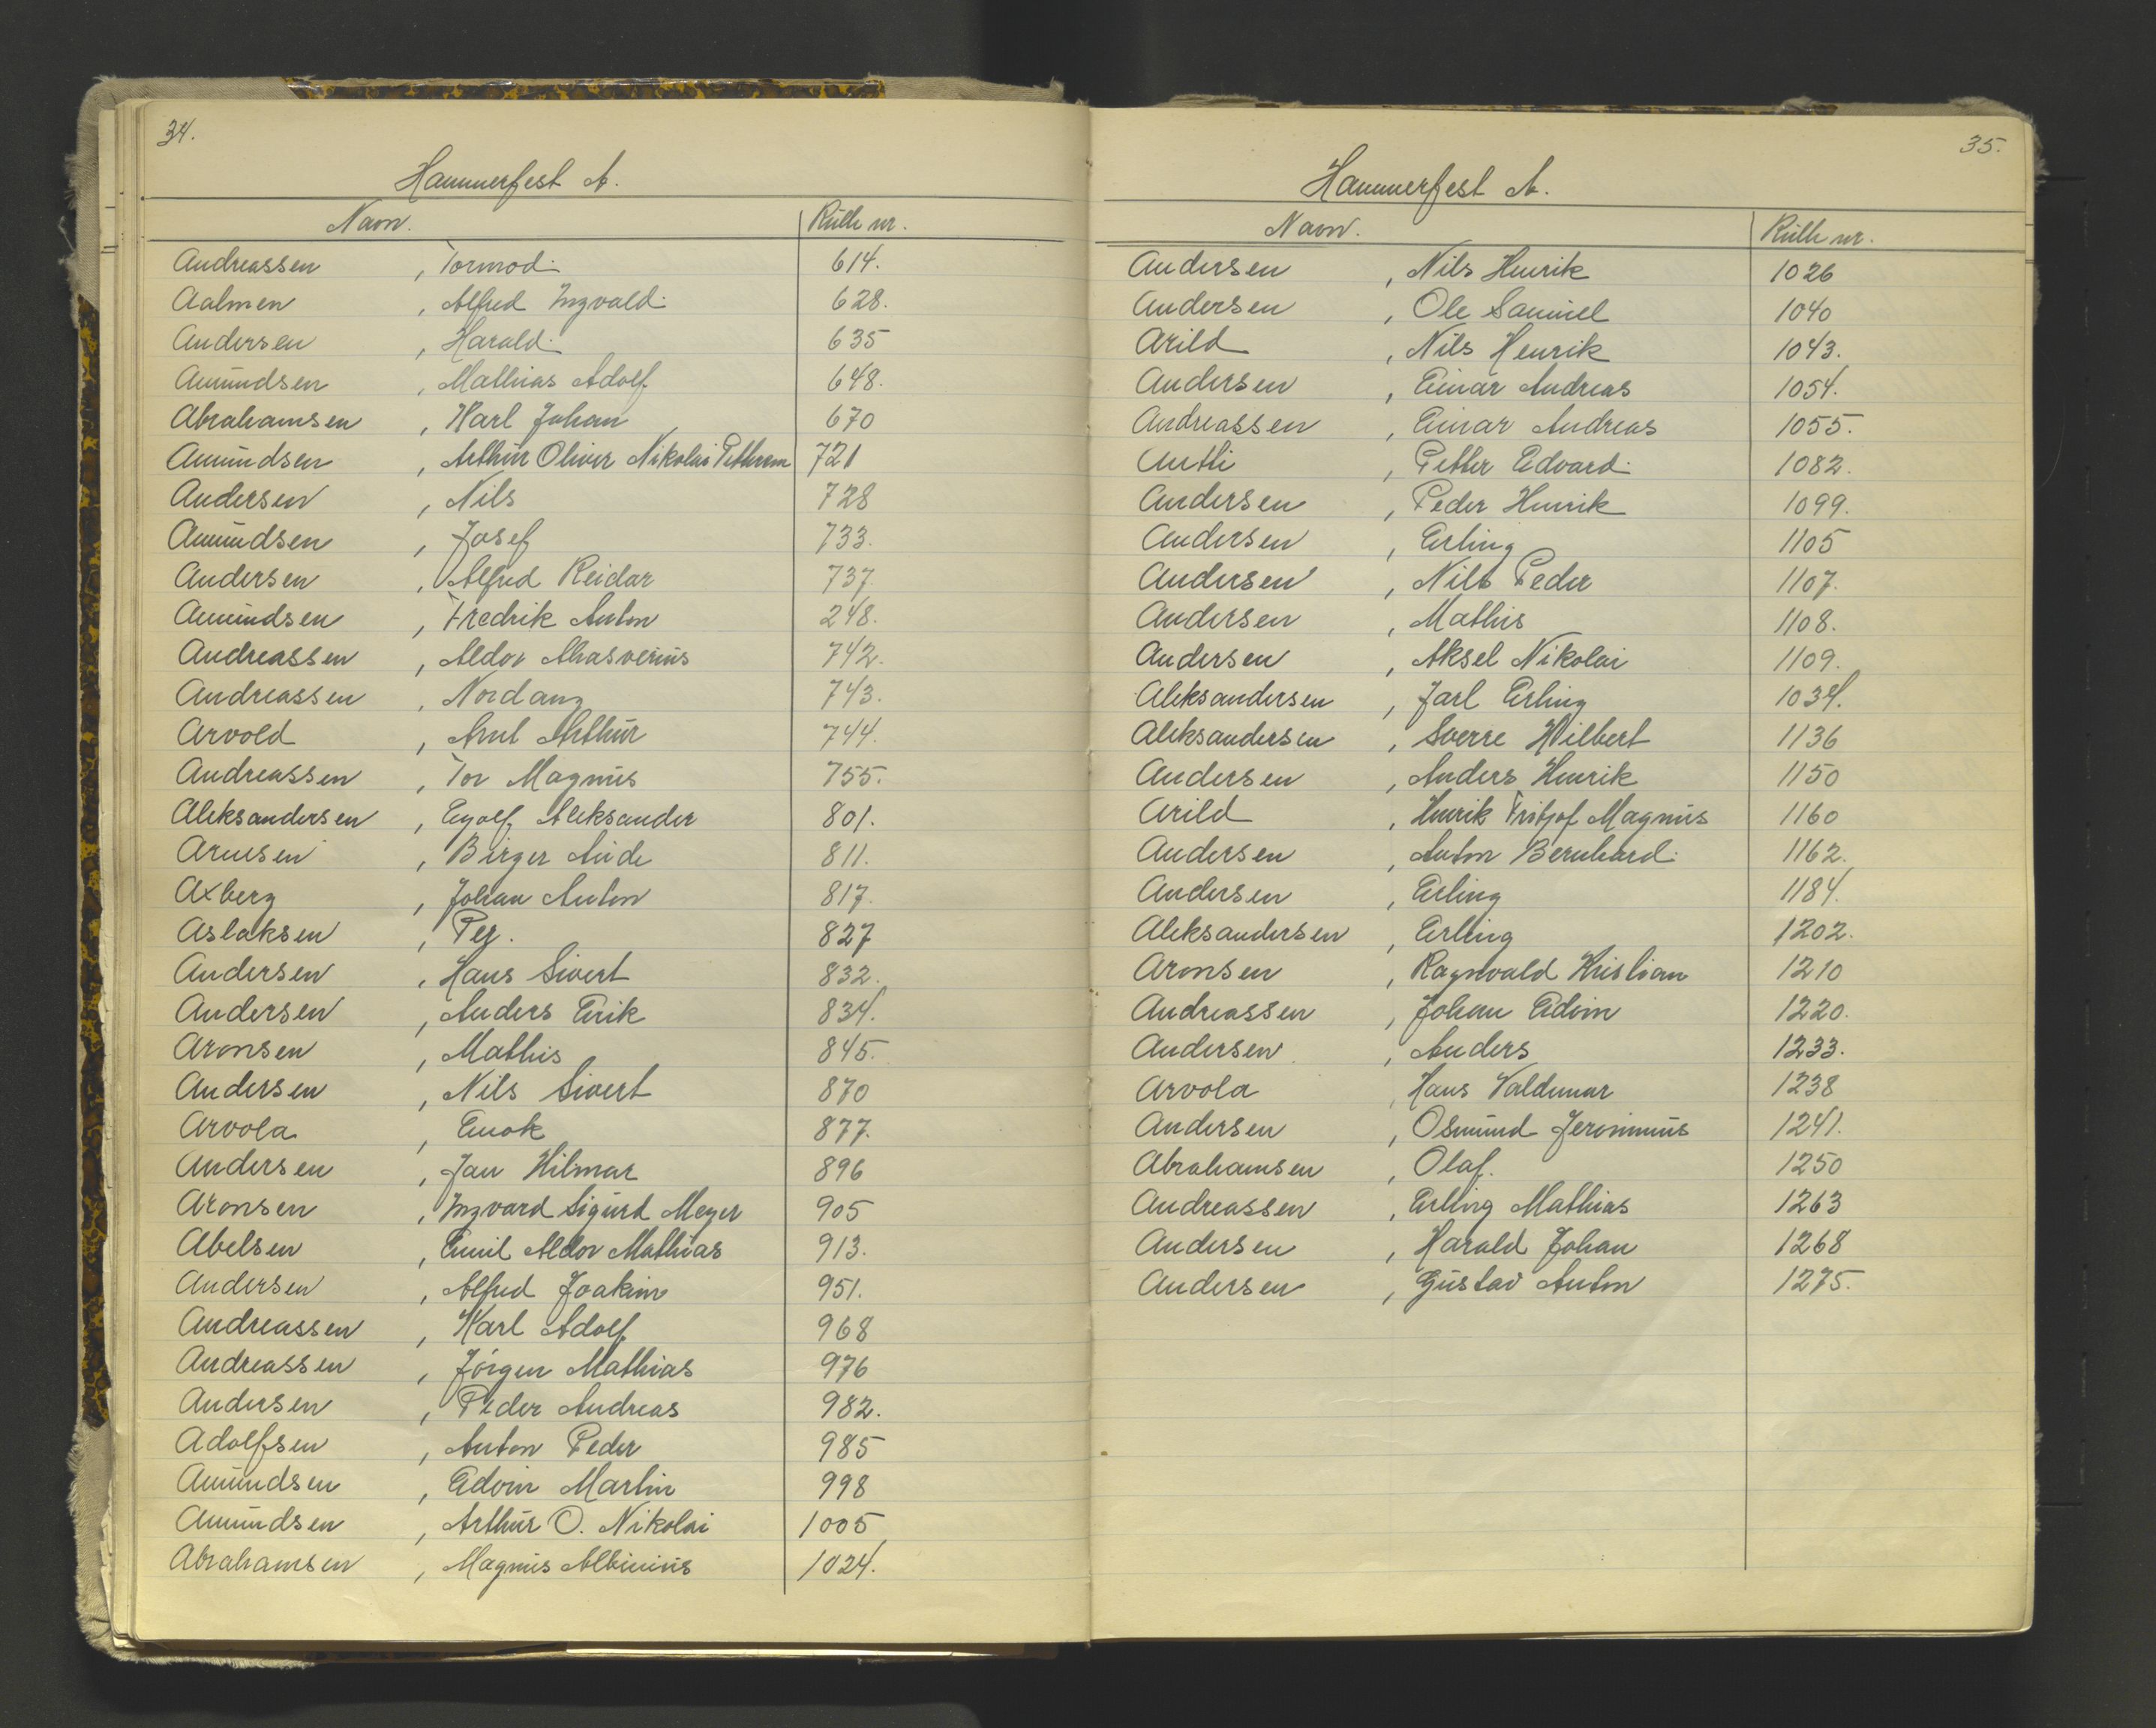 34.
Hammerfest A.
Navn. Rulle nr.
Andreassen , Tormod. 614.
Aalmen , Alfred Ingvald. 628.
Andersen , Harald. 635
Amundsen , Mathias Adolf 648.
Abrahamsen , Karl Johan 670
Amundsen , Arthur Oliver Nikolai 721
Andersen , Nils 728
Amundsen , Josef 733.
Andersen , Alfred Reidar 737.
Amundsen , Fredrik Anton 248.
Andreassen , Aldor Ahasverius 742.
Andreassen , Nordang 743.
Arvold , Arnt Arthur 744.
Andreassen , Tor Magnus 755.
Aleksandersen , Eyolf Aleksander 801.
Arnesen , Birger Aude 811.
Axberg , Johan Anton 817.
Aslaksen , Per. 827
Andersen , Hans Sivert 832.
Andersen , Anders Eirik 834.
Aronsen , Mathis 845.
Andersen , Nils Sivert 870
Arvola , Enok 877.
Andersen , Jan Hilmar 896
Aronsen , Ingvard Sigurd Meyer 905
Abelsen , Emil Aldor Mathias 913.
Andersen , Alfred Joakim 951.
Andreassen , Karl Adolf 968
Andreassen , Jörgen Mathias 976
Andersen , Peder Andreas 982.
Adolfsen , Anton Peder 985
Amundsen , Edvin Martin 998
Amundsen , Arthur O. Nikolai 1005
Abrahamsen , Magnus Albinius 1024.
35.
Hammerfest A.
Navn. Rulle nr.
Andersen , Nils Henrik 1026
Andersen , Ole Samuel 1040
Arild , Nils Henrik 1043.
Andersen , Einar Andreas 1054.
Andreassen , Einar Andreas 1055.
Antti , Petter Edvard. 1082.
Andersen , Peder Henrik 1099.
Andersen , Erling 1105
Andersen , Nils Peder 1107.
Andersen , Mathis 1108.
Andersen , Aksel Nikolai 1109.
Aleksandersen , Jarl Erling 1034.
Aleksandersen , Sverre Wilbert 1136
Andersen , Anders Henrik 1150
Arild , Henrik Fritjof Magnus 1160
Andersen , Anton Bernhard. 1162.
Andersen , Erling 1184.
Aleksandersen , Erling 1202.
Aronsen , Ragnvald Kristian 1210
Andreassen , Johan Edvin 1220.
Andersen , Anders 1233.
Arvola , Hans Valdemar 1238
Andersen , Osmund Jeronimus 1241.
Abrahamsen , Olaf. 1250
Andreassen , Erling Mathias 1263
Andersen , Harald Johan 1268
Andersen , Gustav Anton 1275.